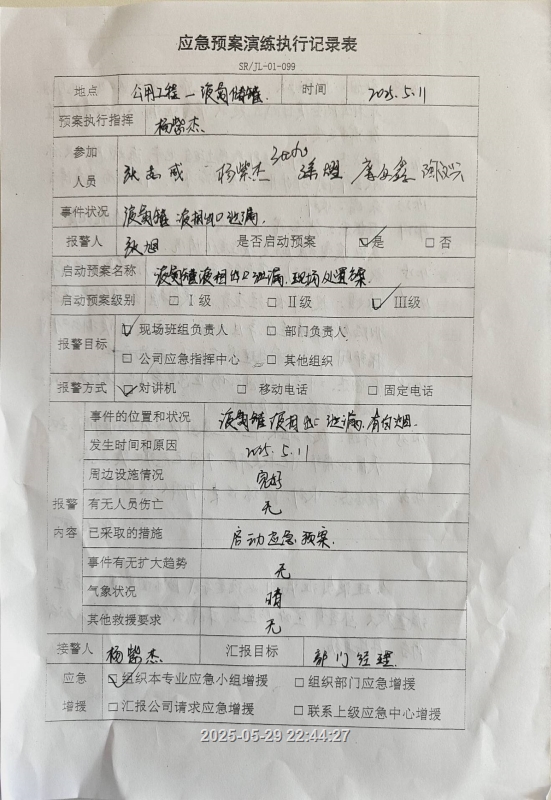 应急预案演练执行记录表
SR/JL-01-099
地点 公用工程—液氮储罐. 时间 2025.5.11
预案执行指挥 杨紫杰.
参加人员 张志威 杨紫杰
事件状况 液氮罐液相出口泄漏.
报警人 张旭 是否启动预案 ☑是 □否
启动预案名称 液氮罐液相出口泄漏.现场处置方案.
启动预案级别 □Ⅰ级 □Ⅱ级 ☑Ⅲ级
报警目标 ☑现场班组负责人 □部门负责人
□公司应急指挥中心 □其他组织
报警方式 ☑对讲机 □移动电话 □固定电话
报警内容
事件的位置和状况 液氮罐液相出口泄漏,有白烟.
发生时间和原因 2025.5.11
周边设施情况 完好
有无人员伤亡 无
已采取的措施 启动应急预案.
事件有无扩大趋势 无
气象状况 晴
其他救援要求 无
接警人 杨紫杰 汇报目标 部门经理.
应急增援 ☑组织本专业应急小组增援 □组织部门应急增援
□汇报公司请求应急增援 □联系上级应急中心增援
2025-05-29 22:44:27